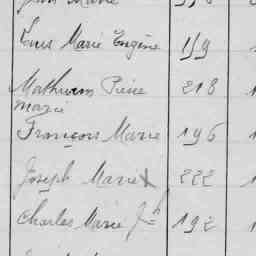 Marie
Louis Marie Eugène 159 1
Mathurin Pierre 218 1
Marie
François Marie 196 1
Joseph Marie 222 1
Charles Marie Jh 192 1